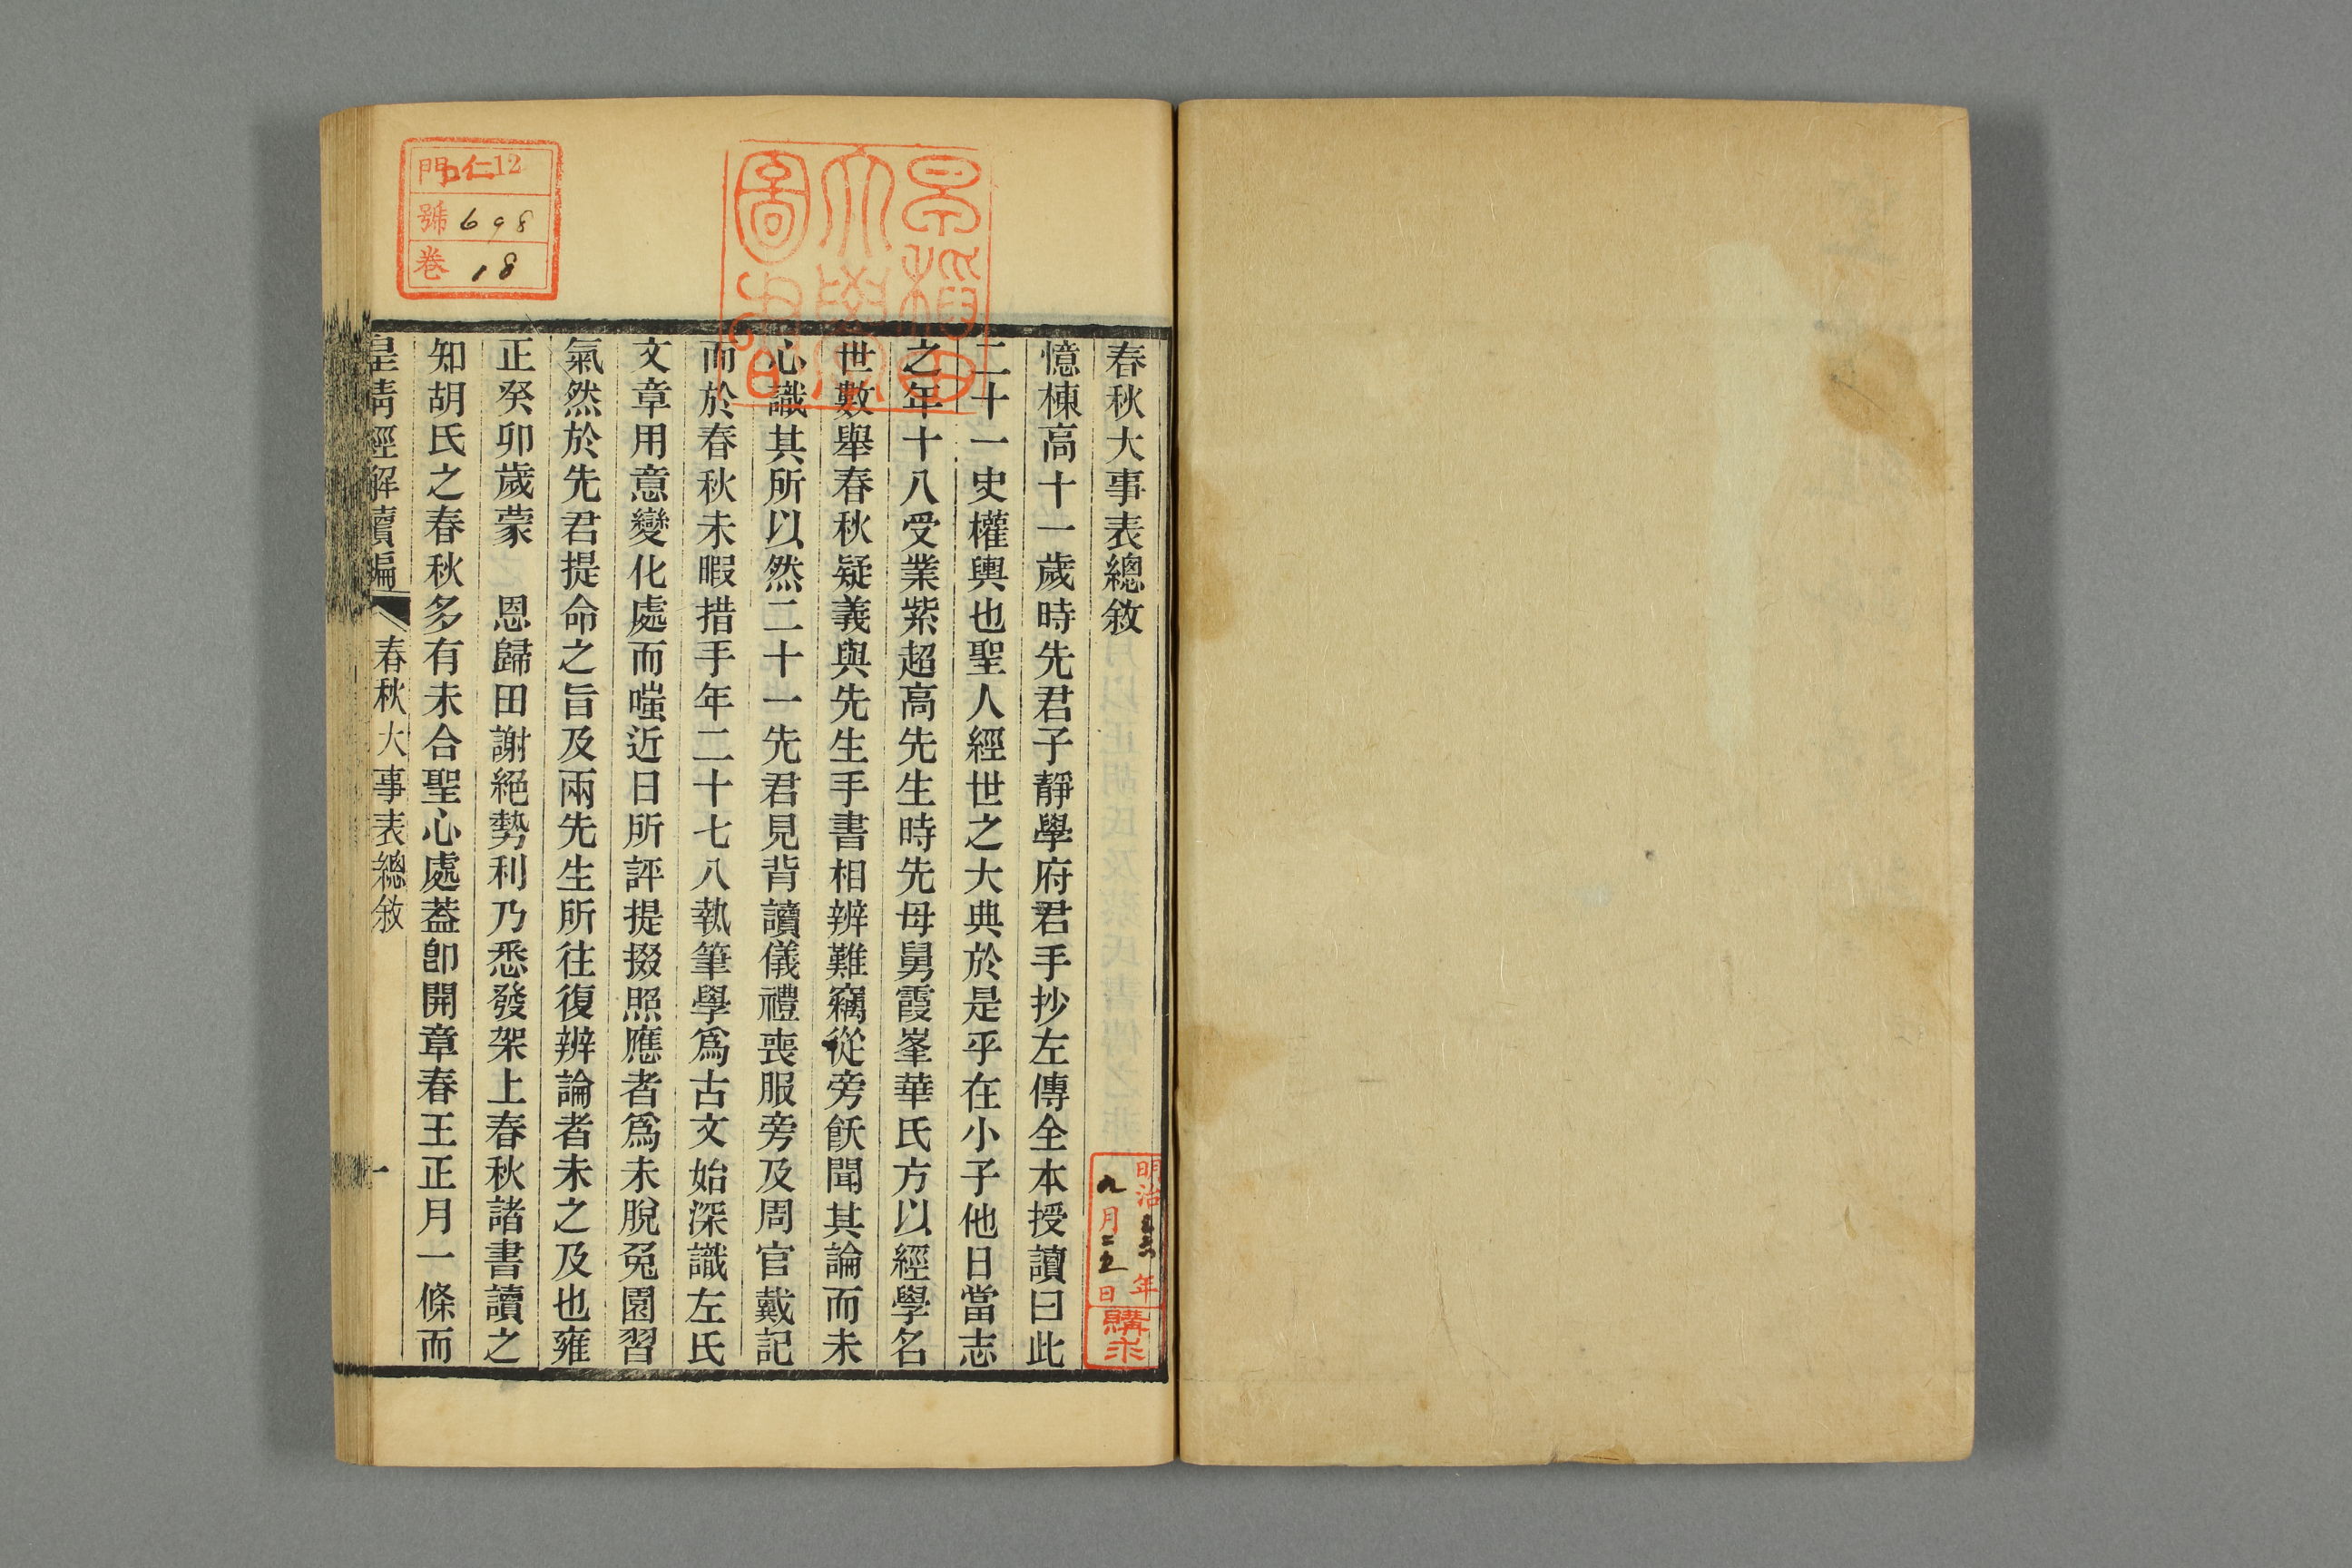 春秋大事表總敘
憶棟高十一歲時先君子靜學府君手抄左傳全本授讀曰此
二十一史權輿也聖人經世之大典於是乎在小子他日當志
之年十八受業紫超高先生時先母舅霞峯華氏方以經學名
世數舉春秋疑義與先生手書相辨難竊從旁飫聞其論而未
心識其所以然二十一先君見背讀儀禮喪服旁及周官戴記
而於春秋未暇措手年二十七八執筆學爲古文始深識左氏
文章用意變化處而嗤近日所評提掇照應者爲未脫兔園習
氣然於先君提命之旨及兩先生所往復辨論者未之及也雍
正癸卯歲蒙 恩歸田謝絕勢利乃悉發架上春秋諸書讀之
知胡氏之春秋多有未合聖心處蓋卽開章春王正月一條而
皇清經解續編 春秋大事表總敘 一
門 仁12
號 698
卷 18
早稻田大學圖書
明治 年
九月二五日
購求